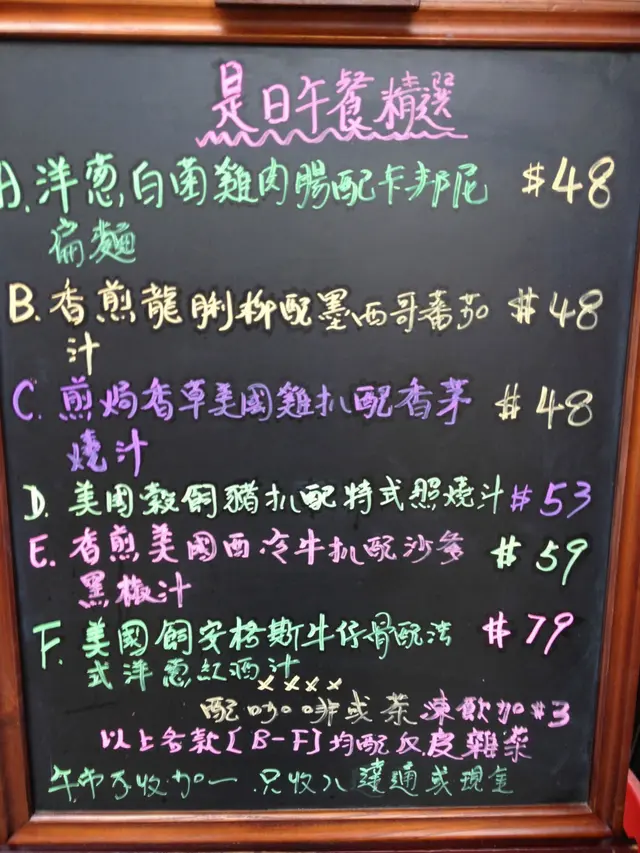 是日午餐精選
A. 洋葱白菌雞肉腸配卡邦尼 $48
扁麵
B. 香煎龍脷柳配墨西哥蕃茄 $48
汁
C. 煎焗香草美國雞扒配香茅 $48
燒汁
D. 美國穀飼豬扒配特式照燒汁 $53
E. 香煎美國西冷牛扒配沙爹 $59
黑椒汁
F. 美國飼安格斯牛仔骨配法 $79
式洋葱紅酒汁
xxxx
配咖啡或茶 凍飲加$3
以上各款[B-F]均配 皮雜菜
午市不收加一 .只收八達通或現金